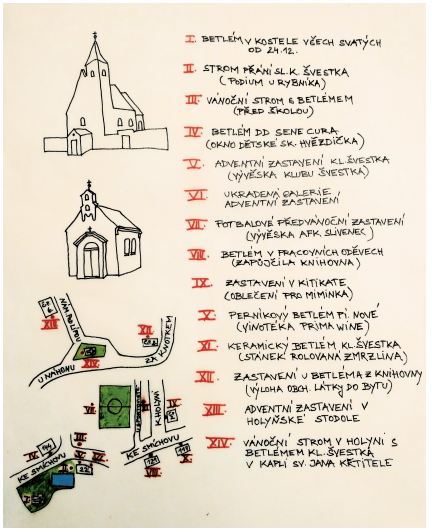 I. BETLÉM V KOSTELE VŠECH SVATÝCH
OD 24.12.
II. STROM PŘÁNÍ SL.K. ŠVESTKA
(PODIUM U RYBNÍKA)
III. VÁNOČNÍ STROM S BETLÉMEM
(PŘED ŠKOLOU)
IV. BETLÉM DD SENE CURA
(OKNO DĚTSKÉ SK. HVĚZDIČKA)
V. ADVENTNÍ ZASTAVENÍ KL. ŠVESTKA
(VÝVĚSKA KLUBU ŠVESTKA)
VI. UKRADENÁ GALERIE
ADVENTNÍ ZASTAVENÍ
VII. FOTBALOVÉ PŘEDVÁNOČNÍ ZASTAVENÍ
(VÝVĚSKA AFK SLIVENEC)
VIII. BETLÉM V PRACOVNÍCH ODĚVECH
(ZAPŮJČILA KNIHOVNA)
IX. ZASTAVENÍ V KITIKATE
(OBLEČENÍ PRO MIMINKA)
X. PERNIKOVÝ BETLÉM PÍ. NOVÉ
(VINOTEKA PRIMA WINE)
XI. KERAMICKÝ BETLÉM KL. ŠVESTKA
(STÁNEK ROLOVANÁ ZMRZLINA)
XII. ZASTAVENÍ U BETLÉMA Z KNIHOVNY
(VÝLOHA OBCH. LÁTKY DO BYTU)
XIII. ADVENTNÍ ZASTAVENÍ V
HOLYŇSKÉ STODOLE
XIV. VÁNOČNÍ STROM V HOLYNI S
BETLÉMEM KL. ŠVESTKA
V KAPLI SV. JANA KŘTITELE
XIII.
XII.
ZA KNOTKEM
U NÁHONU
XIV.
K HOLYNI
KE SMÍCHOVU
KE SMÍCHOVU
III.
IV.
II.
VIII.